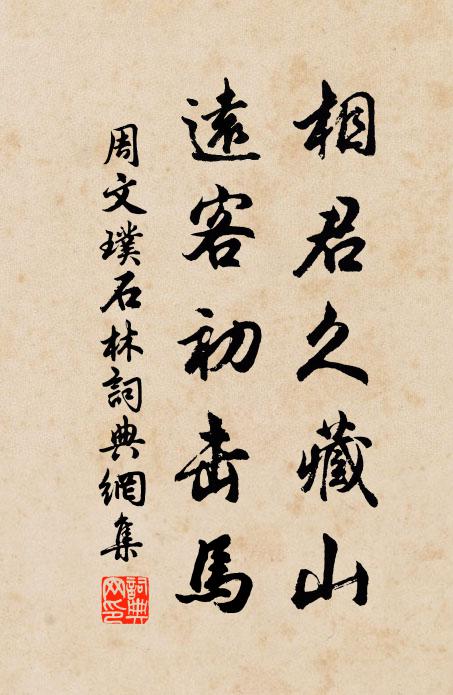 相君久藏山
遠客初击馬
周文璞石林詞典網集
詞典网印